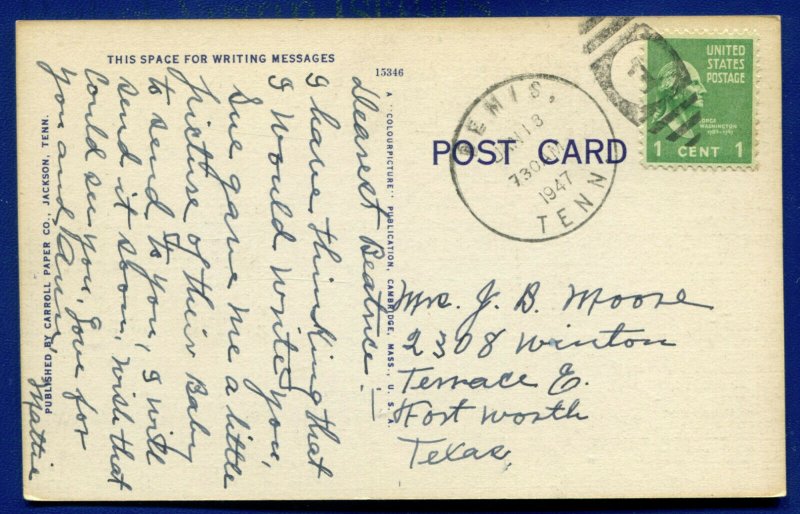 THIS SPACE FOR WRITING MESSAGES
15346
POST CARD
BEMIS,
JUN 13
730AM
1947
TENN
UNITED
STATES
POSTAGE
GEORGE
WASHINGTON
1 CENT 1
Dearest Beatrice!
I have thinking that
I would write you,
Sue gave me a little
picture of their Baby
to send to you, I will
send it soon, wish that
could see you, Love for
you and
Mattie
A "COLOURPICTURE" PUBLICATION, CAMBRIDGE, MASS., U. S. A.
PUBLISHED BY CARROLL PAPER CO., JACKSON, TENN.
Mrs. J. B. Moore
2308 Winton
Terrace E.
Fort Worth
Texas,